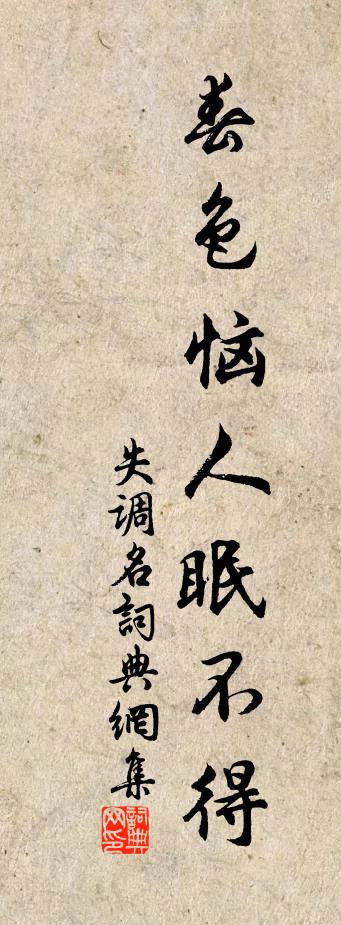 春色恼人眠不得
失调名詞典網集
詞典网印